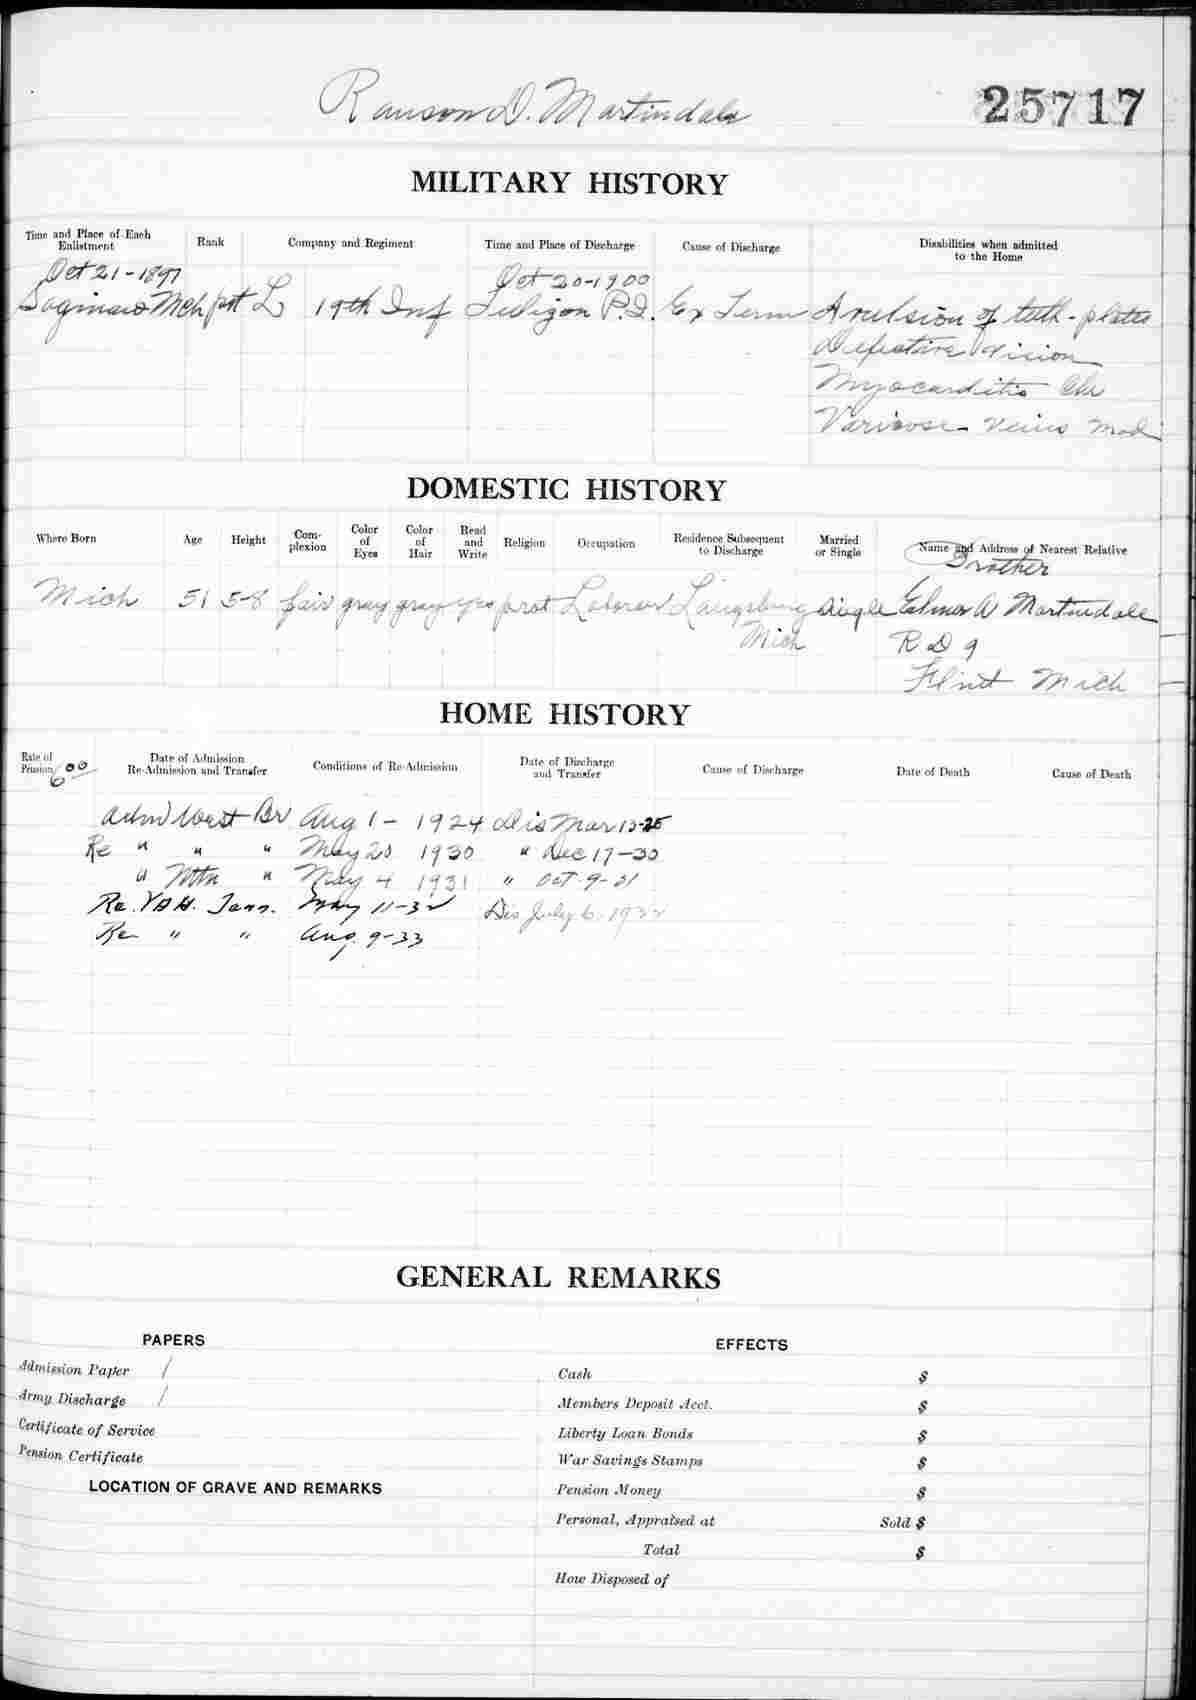 Ranson D. Martindale
25717
MILITARY HISTORY
Time and Place of Each Enlistment Rank Company and Regiment Time and Place of Discharge Cause of Discharge Disabilities when admitted to the Home
Oct 21-1897 Oct 20-1900
Saginaw Mch pvt L 19th Inf P.I. Ex Term Avulsion of teeth - plates
Defective Vision
Myocarditis Chr
Varicose Veins Mod
DOMESTIC HISTORY
Where Born Age Height Complexion Color of Eyes Color of Hair Read and Write Religion Occupation Residence Subsequent to Discharge Married or Single Name and Address of Nearest Relative
Brother
Mich 51 5-8 fair gray gray yes prot Laborer Laingsburg single Elmer A Martindale
Mich R D 9
Flint Mich
HOME HISTORY
Rate of Pension 6 00 Date of Admission Re-Admission and Transfer Conditions of Re-Admission Date of Discharge and Transfer Cause of Discharge Date of Death Cause of Death
Adm West Br Aug 1 - 1924 Dis Mar 13-25
Re " " " May 20 1930 " Dec 17-30
" Mtn " May 4 1931 " Oct-9-31
Re. VAH. Tenn. May 11-32 Dis July 6-1932
Re " " Aug. 9-33
GENERAL REMARKS
PAPERS EFFECTS
Admission Paper / Cash $
Army Discharge / Members Deposit Acct. $
Certificate of Service Liberty Loan Bonds $
Pension Certificate War Savings Stamps $
LOCATION OF GRAVE AND REMARKS Pension Money $
Personal, Appraised at Sold $
Total $
How Disposed of